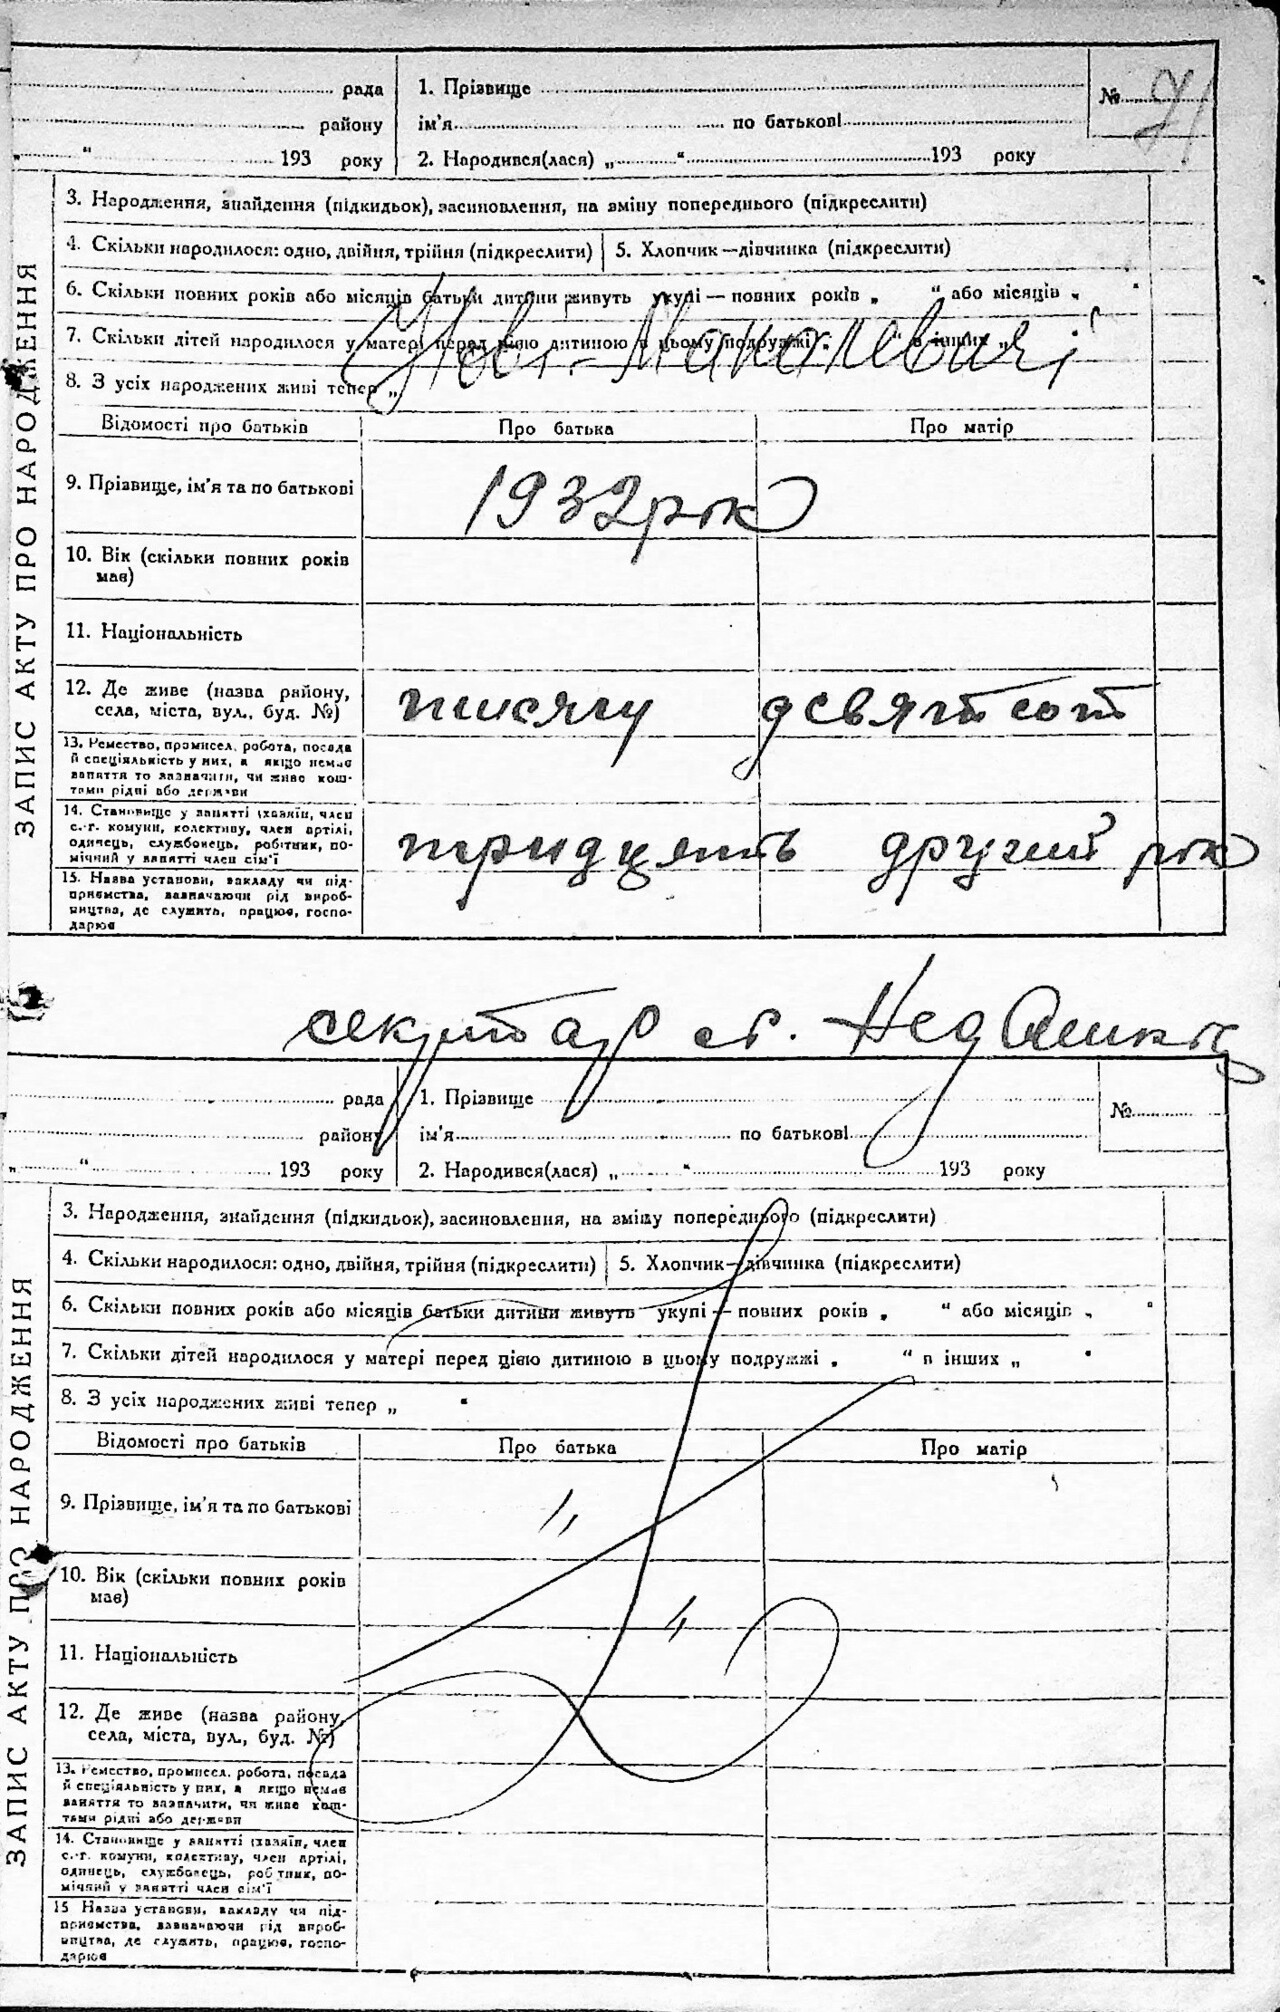 рада
району
„ “ 193 року
1. Прізвище
ім'я по батькові
2. Народився(лася) „ “ 193 року
№ 71
ЗАПИС АКТУ ПРО НАРОДЖЕННЯ
3. Народження, знайдення (підкидьок), засиновлення, на зміну попереднього (підкреслити)
4. Скільки народилося: одно, двійня, трійня (підкреслити)
5. Хлопчик—дівчинка (підкреслити)
6. Скільки повних років або місяців батьки дитини живуть укупі — повних років „ “ або місяців „ “
7. Скільки дітей народилося у матері перед цією дитиною в цьому подружжі „ “ в інших „
8. З усіх народжених живі тепер „
Відомості про батьків
Про батька
Про матір
9. Прізвище, ім'я та по батькові
1932 рік
10. Вік (скільки повних років
мав)
11. Національність
12. Де живе (назва району,
села, міста, вул., буд. №)
тисячу девятсот
13. Ремество, промисел, робота, посада
й спеціяльність у них, а якщо немає
заняття то зазначити, чи живе кош-
тами рідні або держави
14. Становище у занятті (хазяїн, член
с.-г. комуни, колективу, член артілі,
одинець, службовець, робітник, по-
мічний у занятті член сім'ї
тридцять другий рік
15. Назва установи, закладу чи під-
приємства, зазначаючи рід вироб-
ництва, де служить, працює, госпо-
дарює
секретар с.
рада
району
„ “ 193 року
1. Прізвище
ім'я по батькові
2. Народився(лася) „ “ 193 року
№
ЗАПИС АКТУ ПРО НАРОДЖЕННЯ
3. Народження, знайдення (підкидьок), засиновлення, на зміну попереднього (підкреслити)
4. Скільки народилося: одно, двійня, трійня (підкреслити)
5. Хлопчик—дівчинка (підкреслити)
6. Скільки повних років або місяців батьки дитини живуть укупі — повних років „ “ або місяців „ “
7. Скільки дітей народилося у матері перед цією дитиною в цьому подружжі „ “ в інших „ “
8. З усіх народжених живі тепер „ “
Відомості про батьків
Про батька
Про матір
9. Прізвище, ім'я та по батькові
10. Вік (скільки повних років
мав)
11. Національність
12. Де живе (назва району,
села, міста, вул., буд. №)
13. Ремество, промисел, робота, посада
й спеціяльність у них, а якщо немає
заняття то зазначити, чи живе кош-
тами рідні або держави
14. Становище у занятті (хазяїн, член
с.-г. комуни, колективу, член артілі,
одинець, службовець, робітник, по-
мічний у занятті член сім'ї
15 Назва установи, закладу чи під-
приємства, зазначаючи рід вироб-
ництва, де служить, працює, госпо-
дарює